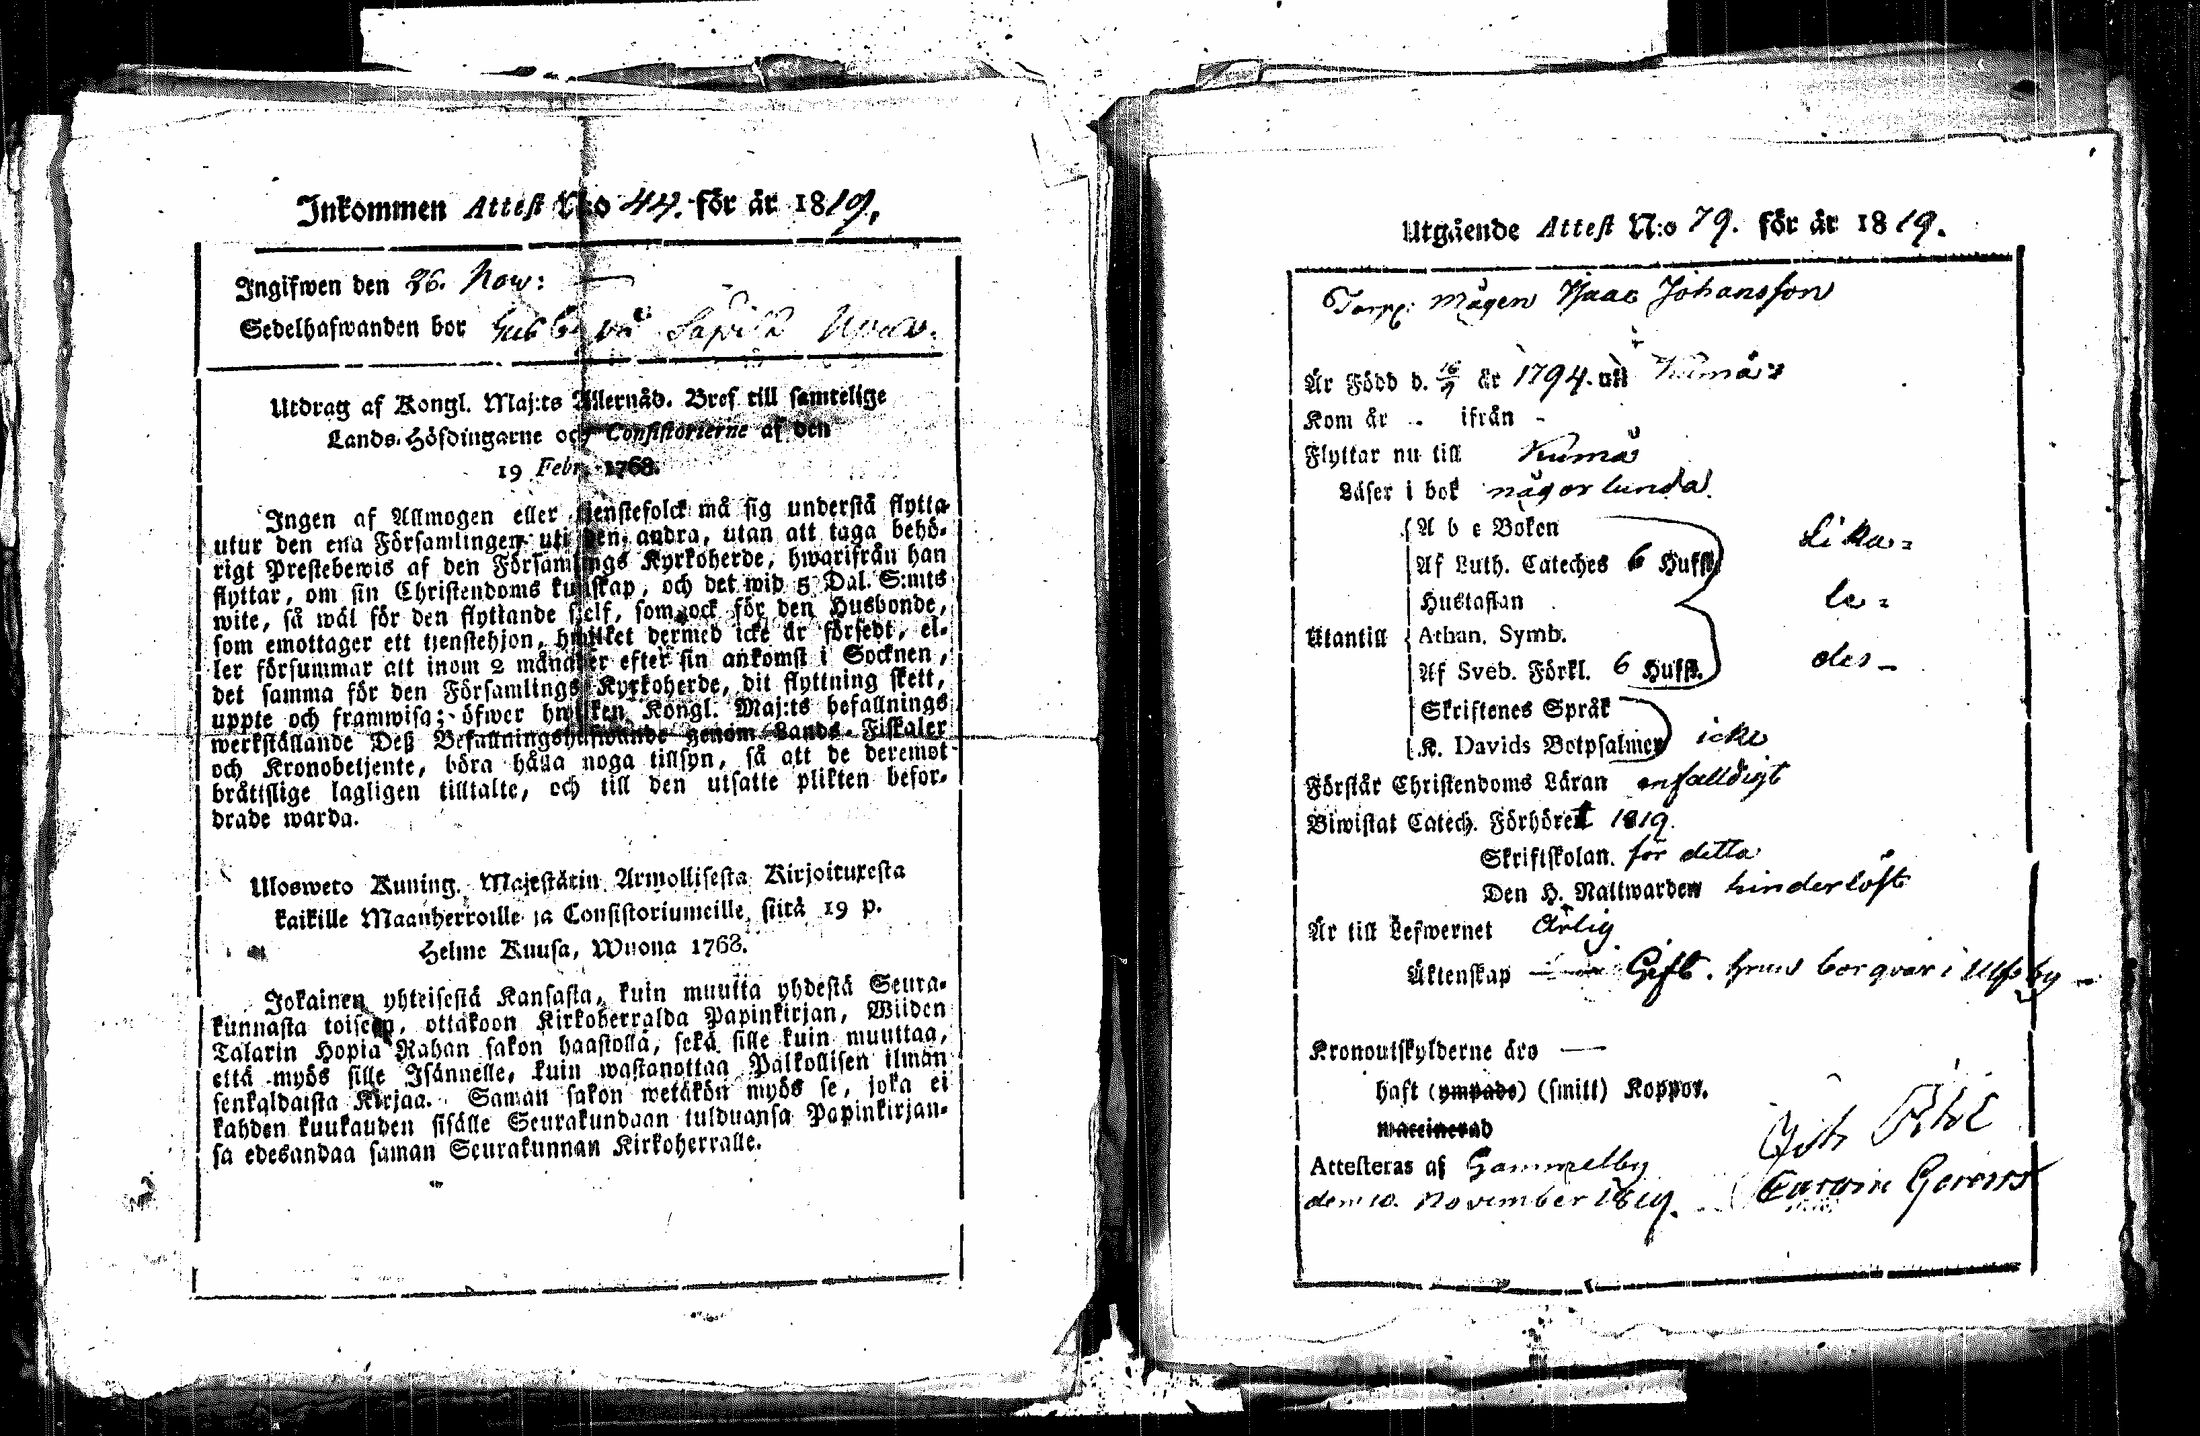 Inkommen Attest N:o 44. för år 1819.
Ingifwen den 26. Nov:
Sedelhafwanden bor
Utdrag af Kongl. Maj:ts Allernåd. Bref till samtelige
Lands-Höfdingarne och Consistorierne af den
19 Febr. 1768.
Ingen af Allmogen eller tjenstefolck må sig understå flytta
utur den ena Församlingen uti den andra, utan att taga behö-
rigt Prestebewis af den Församlings Kyrkoherde, hwarifrån han
flyttar, om sin Christendoms kunskap, och det wid 5 Dal. S:mts
wite, så wäl för den flyttande sielf, som ock för den Husbonde,
som emottager ett tjenstehjon, hwilket dermed icke är försedt, el-
ler försummar att inom 2 månader efter sin ankomst i Socknen,
det samma för den Församlings Kyrkoherde, dit flyttning skett,
uppte och framwisa; öfwer hwilken Kongl. Maj:ts befallnings
werkställande Deß Befallningshafwande genom Lands-Fiskaler
och Kronobetjente, böra hålla noga tillsyn, så att de deremot
bråtislige lagligen tilltalte, och till den utsatte plikten befor-
drade warda.
Ulosweto Kuning. Majestätin Armollisesta Kirjoituxesta
kaikille Maanherroille ja Consistoriumeille, siitä 19 p.
Helme Kuusa, Wuona 1768.
Jokainen yhteisestä Kansasta, kuin muutta yhdestä Seura-
kunnasta toiseen, ottakoon Kirkoherralda Papinkirjan, Wiiden
Talarin Hopia Rahan sakon haastolla, sekä sille kuin muuttaa,
että myös sille Isännelle, kuin wastanottaa Palkollisen ilman
senkaldaista Kirjaa. Saman sakon wetäkön myös se, joka ei
kahden kuukauden sisälle Seurakundaan tulduansa Papinkirjan-
sa edesandaa saman Seurakunnan Kirkoherralle.
Utgående Attest N:o 79. för år 1819.
Torp: Mågen Isaac Johansson
Är Född d. 16/9 år 1794. uti Kumå
Kom år - ifrån -
Flyttar nu till Kumå
Läser i bok någorlunda.
A b c Boken
Af Luth. Cateches 6 Hufst. Lika=
Hustaflan le=
Utantill Athan. Symb.
Af Sveb. Förkl. 6 Hufst. des -
Skriftenes Språk
K. Davids Botpsalmer icke
Förstår Christendoms Läran enfalldigt
Biwistat Catech. Förhöret 1819.
Skriftskolan. för detta
Den H. Nattwarden hinderlöst
Är till Lefwernet Ärlig
Äktenskap Gift. hrun bor qvar i Ulfsby
Kronoutskylderne äro —
haft (ympade) (smitt) Koppor.
waccinerad
Attesteras af Gammelby
den 10. November 1819.